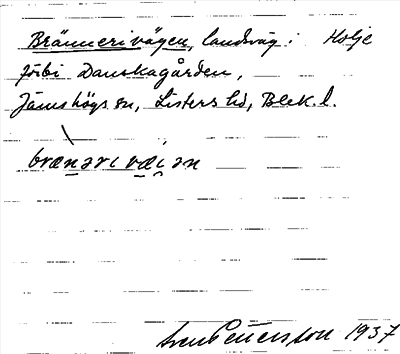 Brännerivägen, landsväg i Holje
förbi Danskagården,
Jämshögs sn, Listers hd, Blek. l.
brænəri væi ən
Sven Petersson 1937